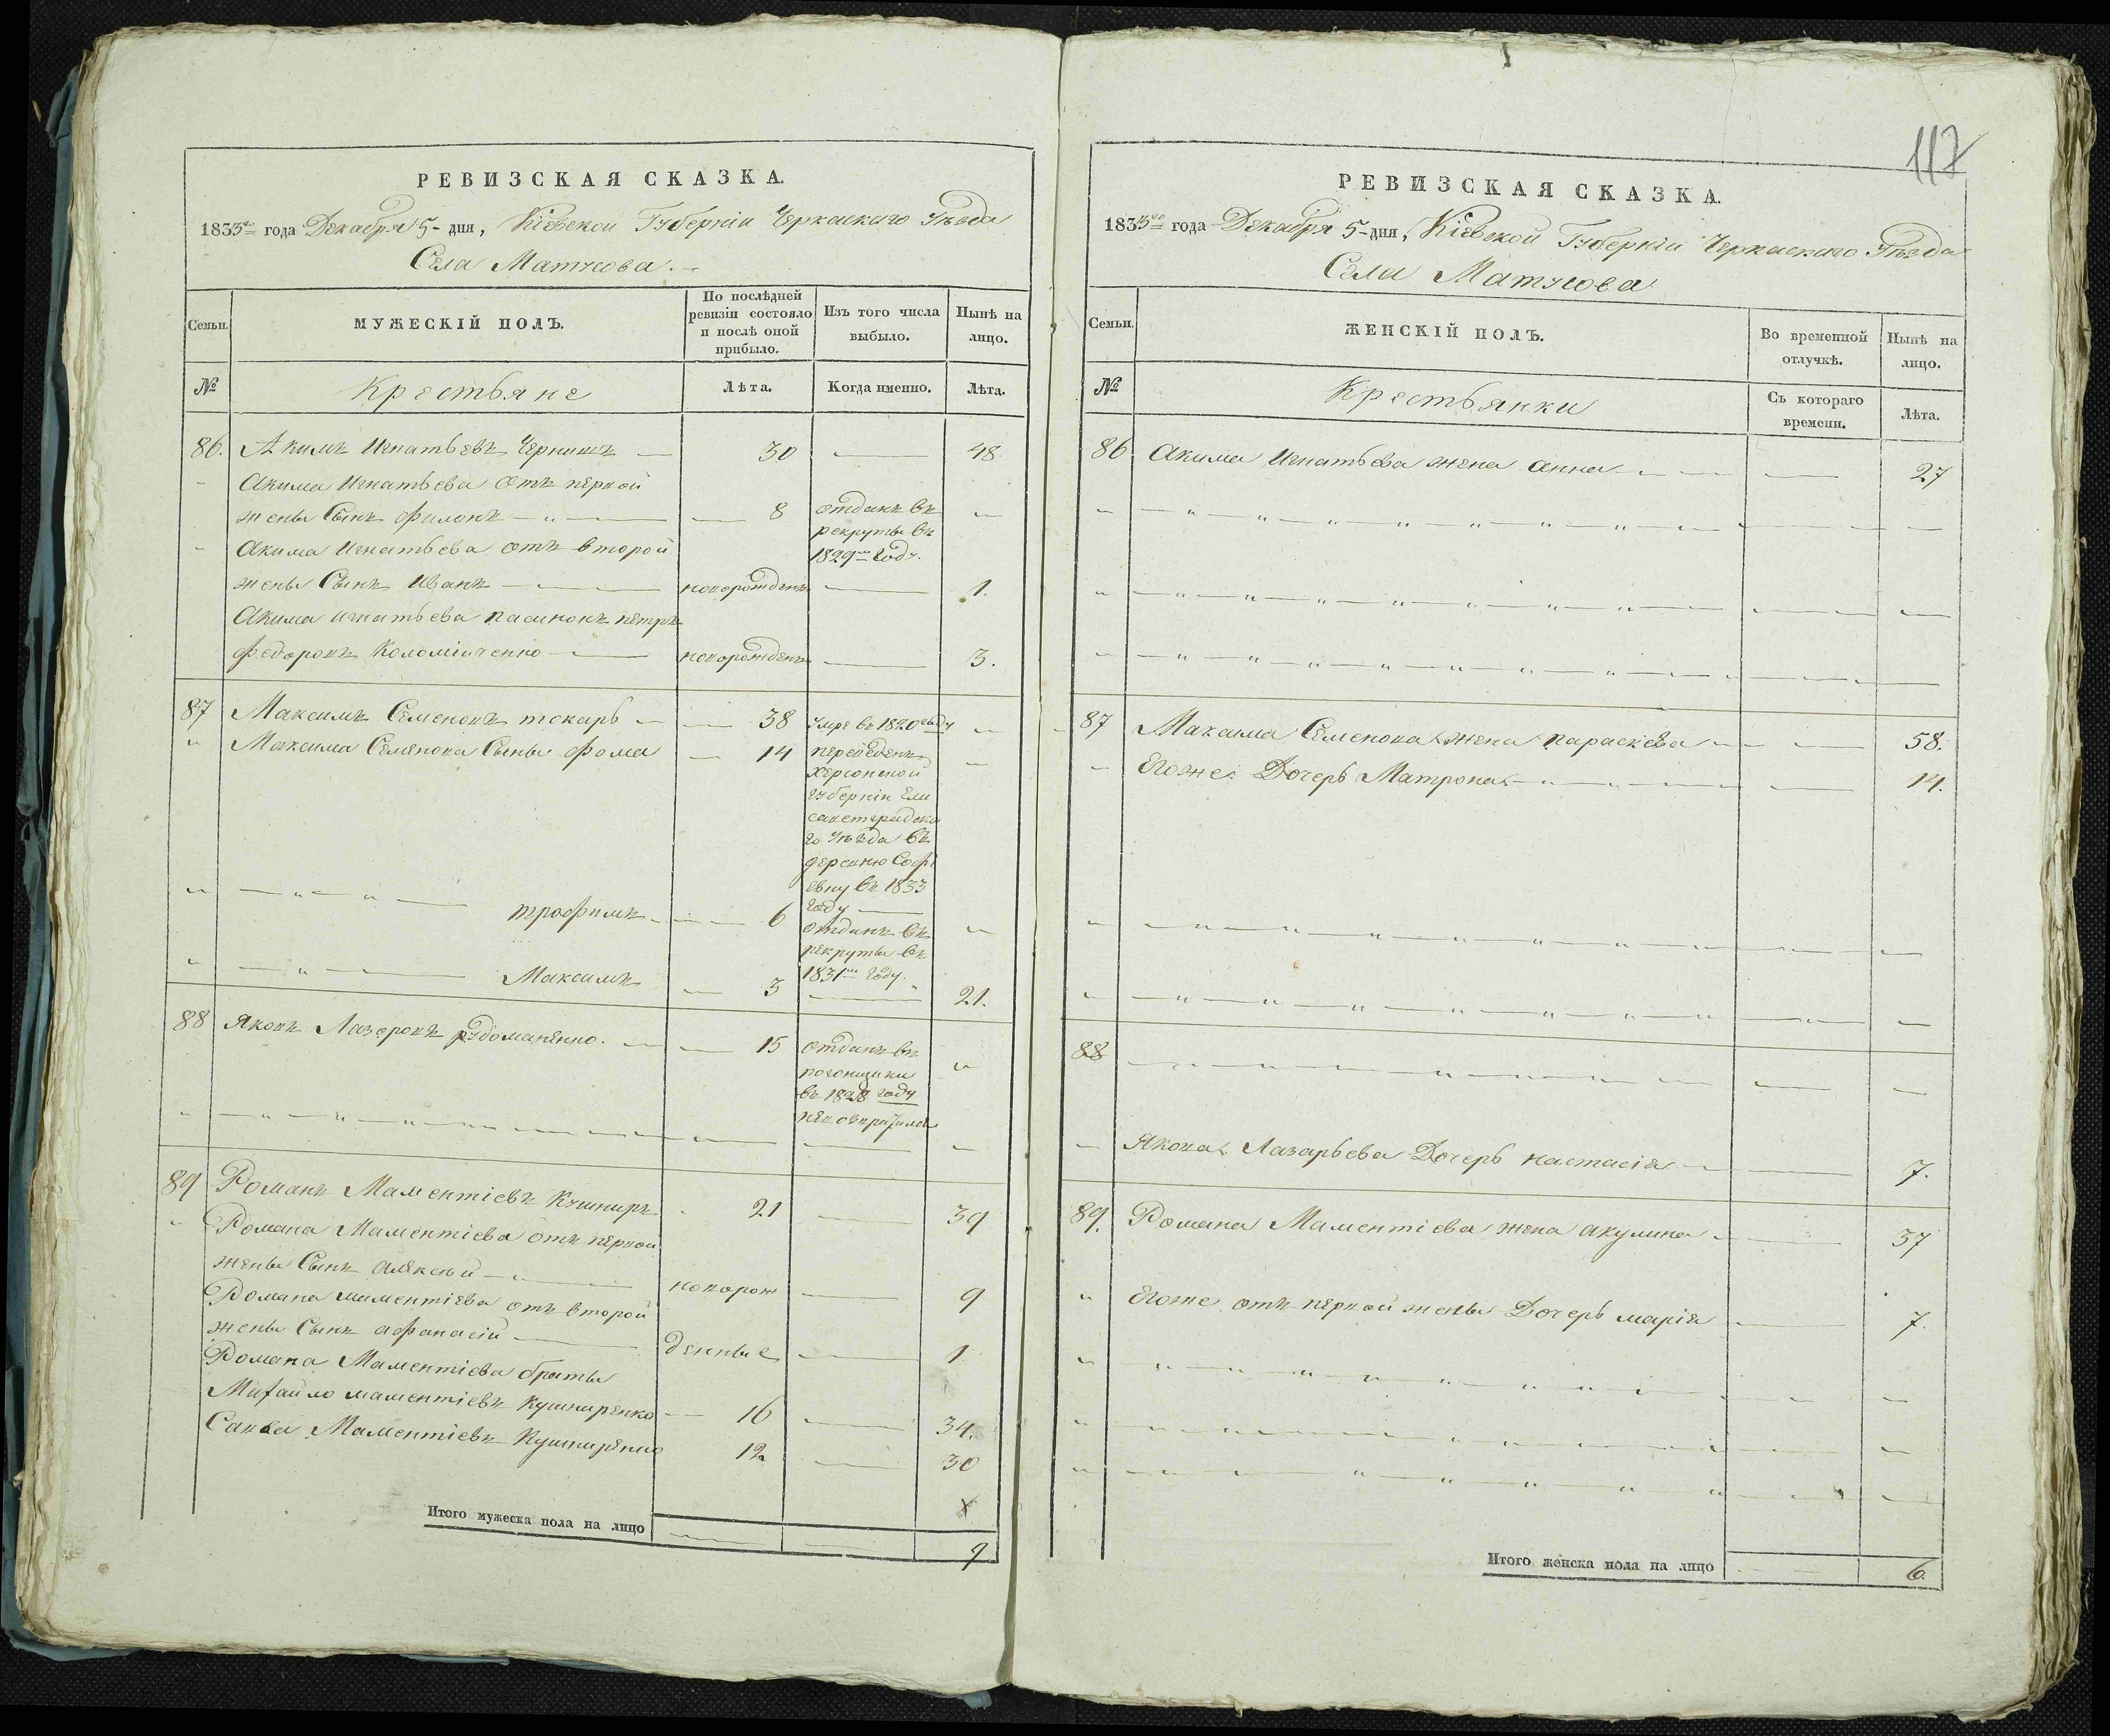 РЕВИЗСКАЯ СКАЗКА.
1835го года Декабря 5 дня, Кіевской Губерніи Черкаскаго Уѣзда
Села Матусова.
Семьи.
МУЖЕСКІЙ ПОЛЪ.
По послѣдней ревизіи состояло и послѣ оной прибыло.
Изъ того числа выбыло.
Нынѣ на лицо.
№
Крестьяне
Лѣта.
Когда именно.
Лѣта.
86. Акимъ Игнатьевъ Чернишъ 30 — 48
Акима Игнатьева отъ первой
жены Сынъ филонъ 8 отданъ въ
рекруты въ
Акима Игнатьева отъ второй 1829м году.
жены Сынъ Иванъ новорожденъ — 1.
Акима игнатьева пасинокъ петръ
федоровъ Коломійченко новорожденъ — 3.
87 Максимъ Семеновъ токарь 38 умре въ 1820 году
Максима Семенова Сыны фома 14 переведенъ
Херсонской
губерніи Ели
саветградска
го уѣзда въ
деревню Софі
евку въ 1833
году
трофимъ 6 отданъ въ
рекруты въ
1831м году.
Максимъ 3 — 21.
88 Яковъ Лазоровъ рудоманенко. 15 отданъ въ
погонщики
въ 1828 году
невозвратился
89 Романъ Маментіевъ Кушниръ 21 — 39
Романа Маментіева отъ первой
жены Сынъ алексѣй новорож — 9
Романа маментіева отъ второй
жены Сынъ афанасій денные — 1
Романа Маментіева браты
Михайло маментіевъ Кушниренко 16 — 34.
Савва Маментіевъ Кушниренко 12 — 30
Итого мужеска пола на лицо 9
117
РЕВИЗСКАЯ СКАЗКА.
1835го года Декабря 5 дня, Кіевской Губерніи Черкаскаго Уѣзда
Села Матусова
Семьи.
ЖЕНСКІЙ ПОЛЪ.
Во временной отлучкѣ.
Нынѣ на лицо.
№
Крестьянки
Съ котораго времени.
Лѣта.
86 Акима Игнатьева жена анна — 27
87 Максима Семенова жена параскева — 58.
Егоже Дочерь Матрона — 14.
88
Якова Лазарьева Дочерь настасія — 7.
89. Романа Маментіева жена акулина — 37
Егоже отъ первой жены Дочерь марія — 7.
Итого женска пола на лицо 6.